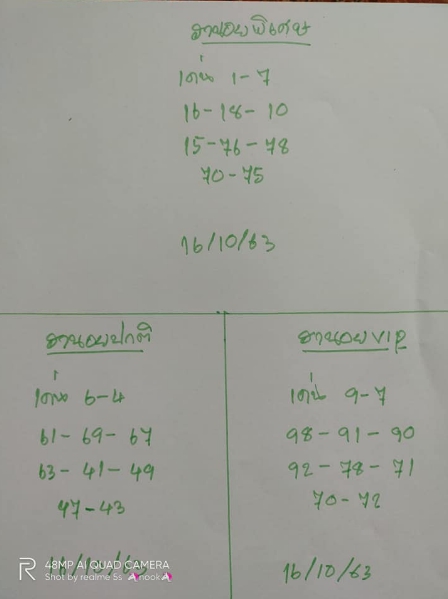 ฮานอยพิเศษ
เด่น 1-7
16-18-10
15-76-78
70-75
16/10/63
ฮานอยปกติ
เด่น 6-4
61-69-67
63-41-49
47-43
16/10/63
ฮานอยVIP
เด่น 9-7
98-91-90
92-78-71
70-72
16/10/63
48MP AI QUAD CAMERA
Shot by realme 5s nook